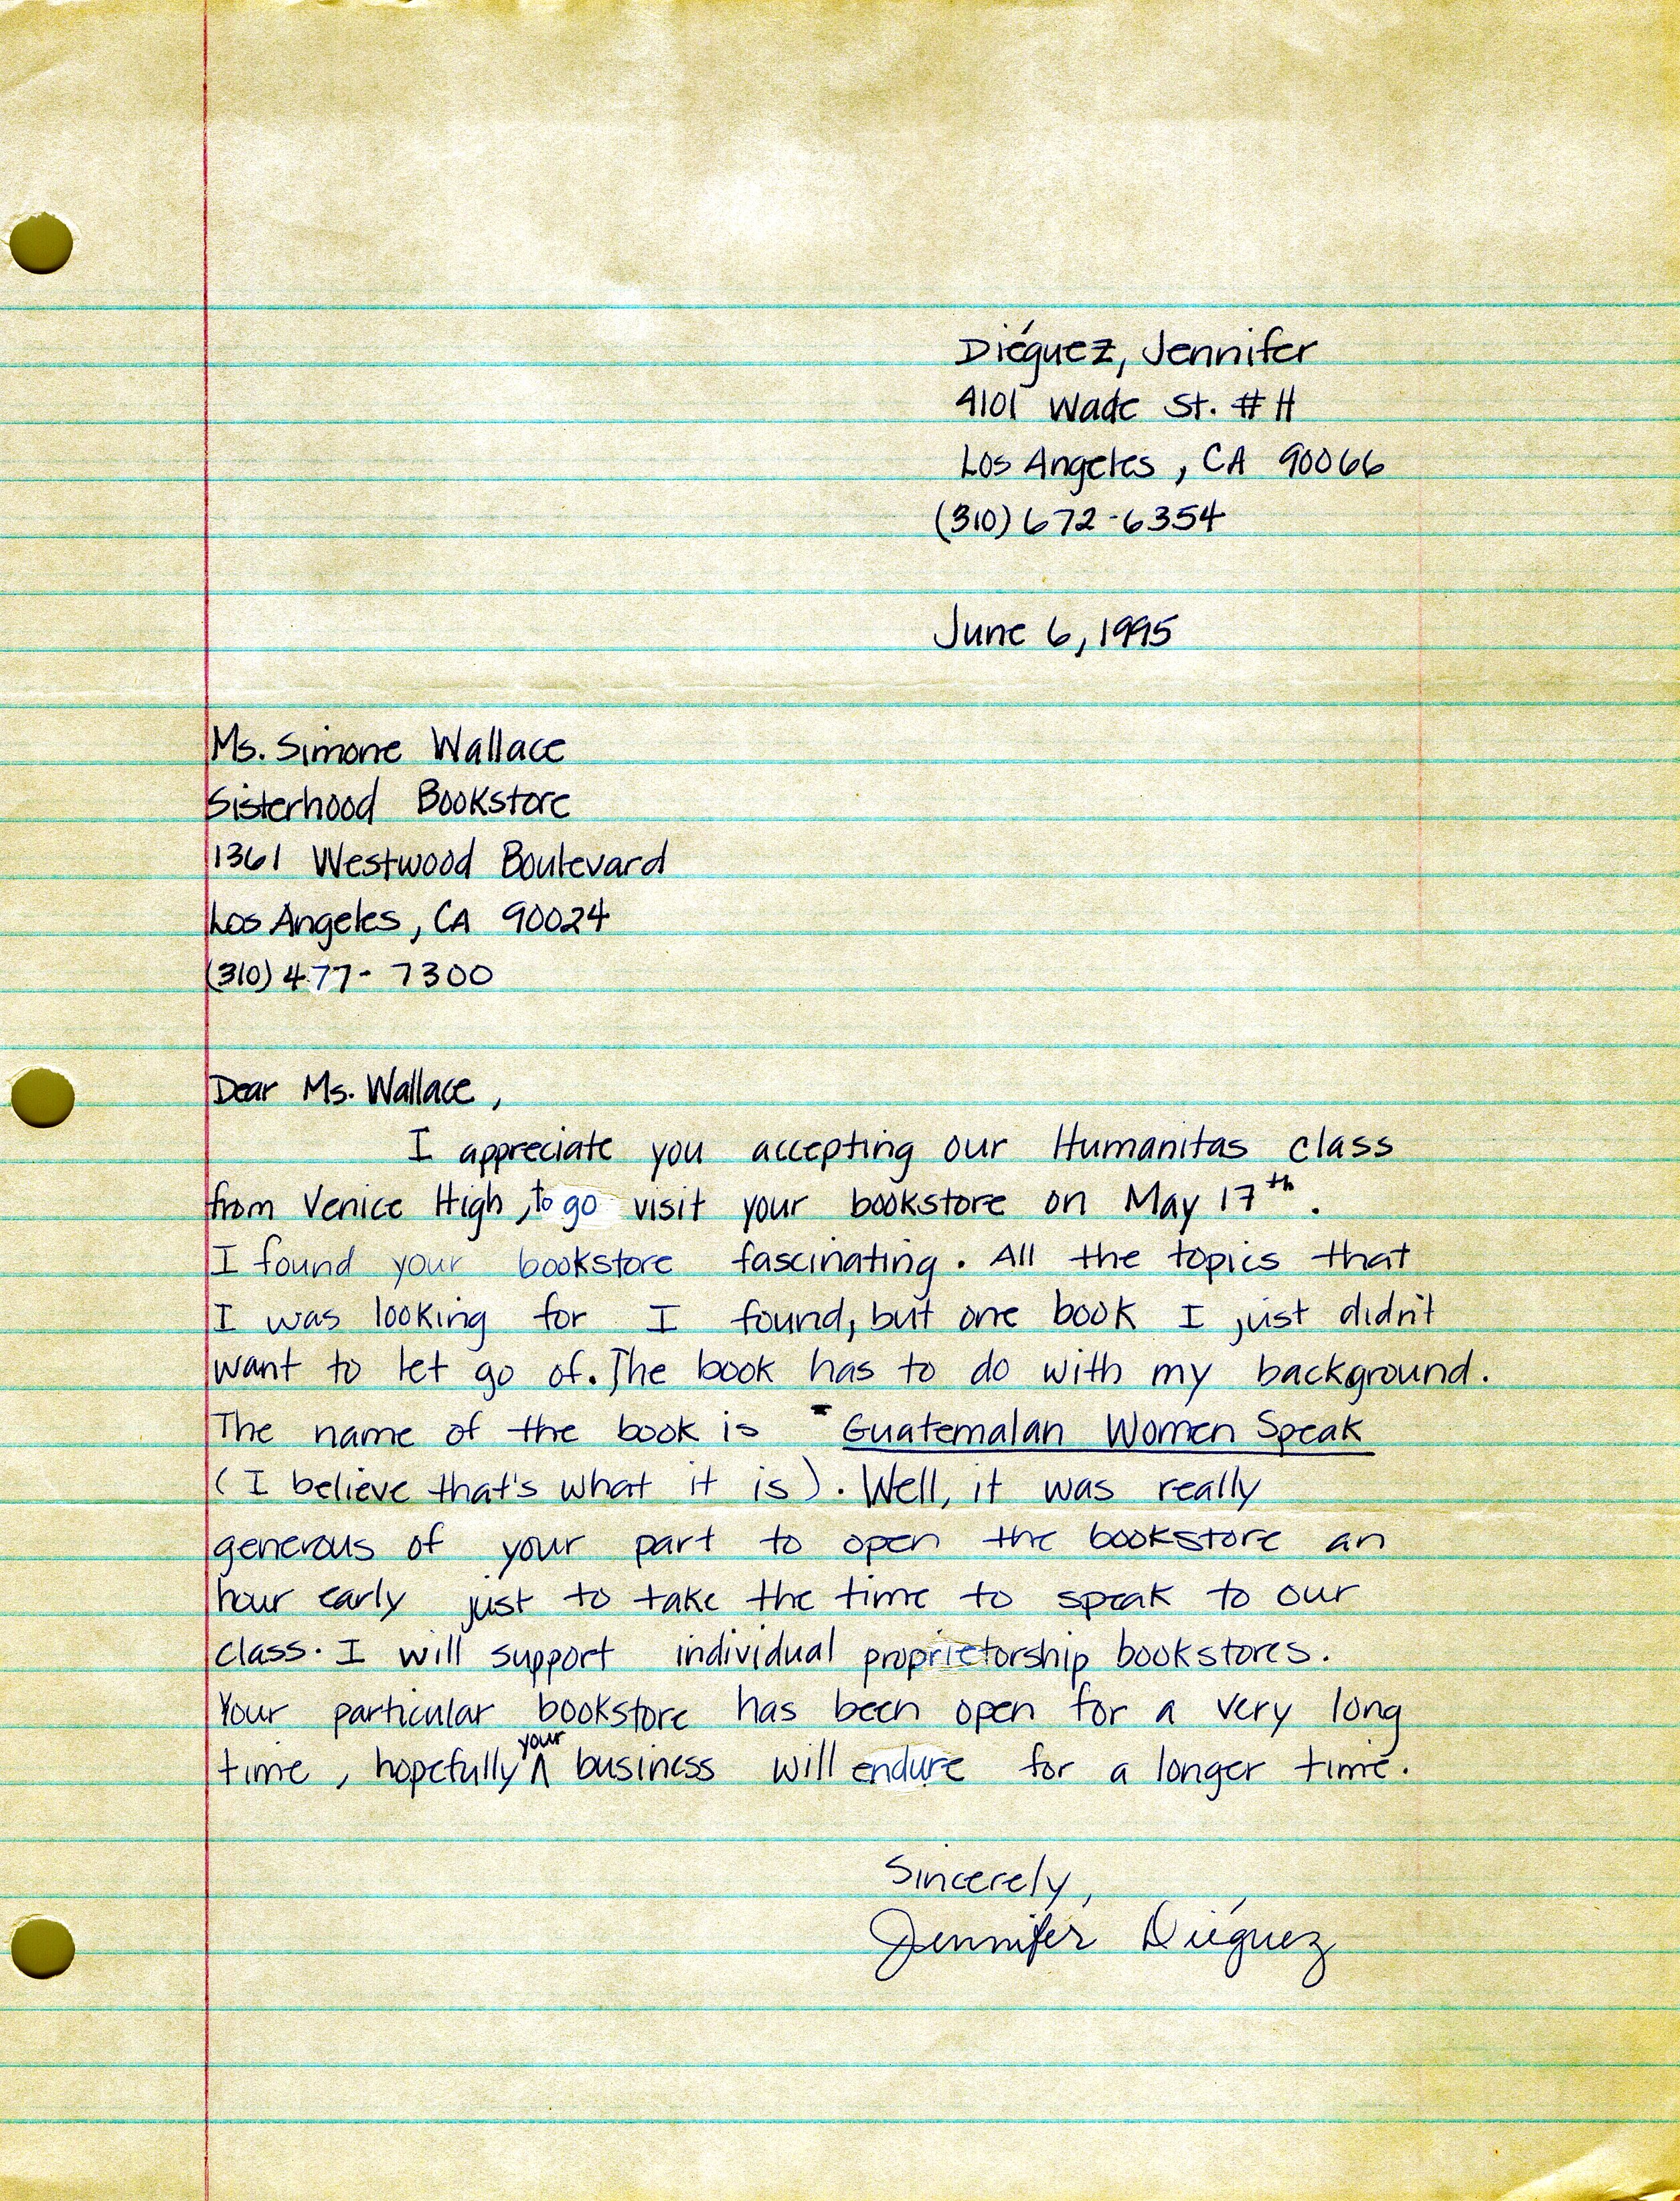 Diéguez, Jennifer
4101 Wade St. # H
Los Angeles, CA 90066
(310) 672-6354
June 6, 1995
Ms. Simone Wallace
Sisterhood Bookstore
1361 Westwood Boulevard
Los Angeles, CA 90024
(310) 477-7300
Dear Ms. Wallace,
I appreciate you accepting our Humanitas class
from Venice High, to go visit your bookstore on May 17th.
I found your bookstore fascinating. All the topics that
I was looking for I found, but one book I just didn't
want to let go of. The book has to do with my background.
The name of the book is Guatemalan Women Speak
(I believe that's what it is). Well, it was really
generous of your part to open the bookstore an
hour early just to take the time to speak to our
class. I will support individual proprietorship bookstores.
Your particular bookstore has been open for a very long
time, hopefully your business will endure for a longer time.
Sincerely,
Jennifer Diéguez